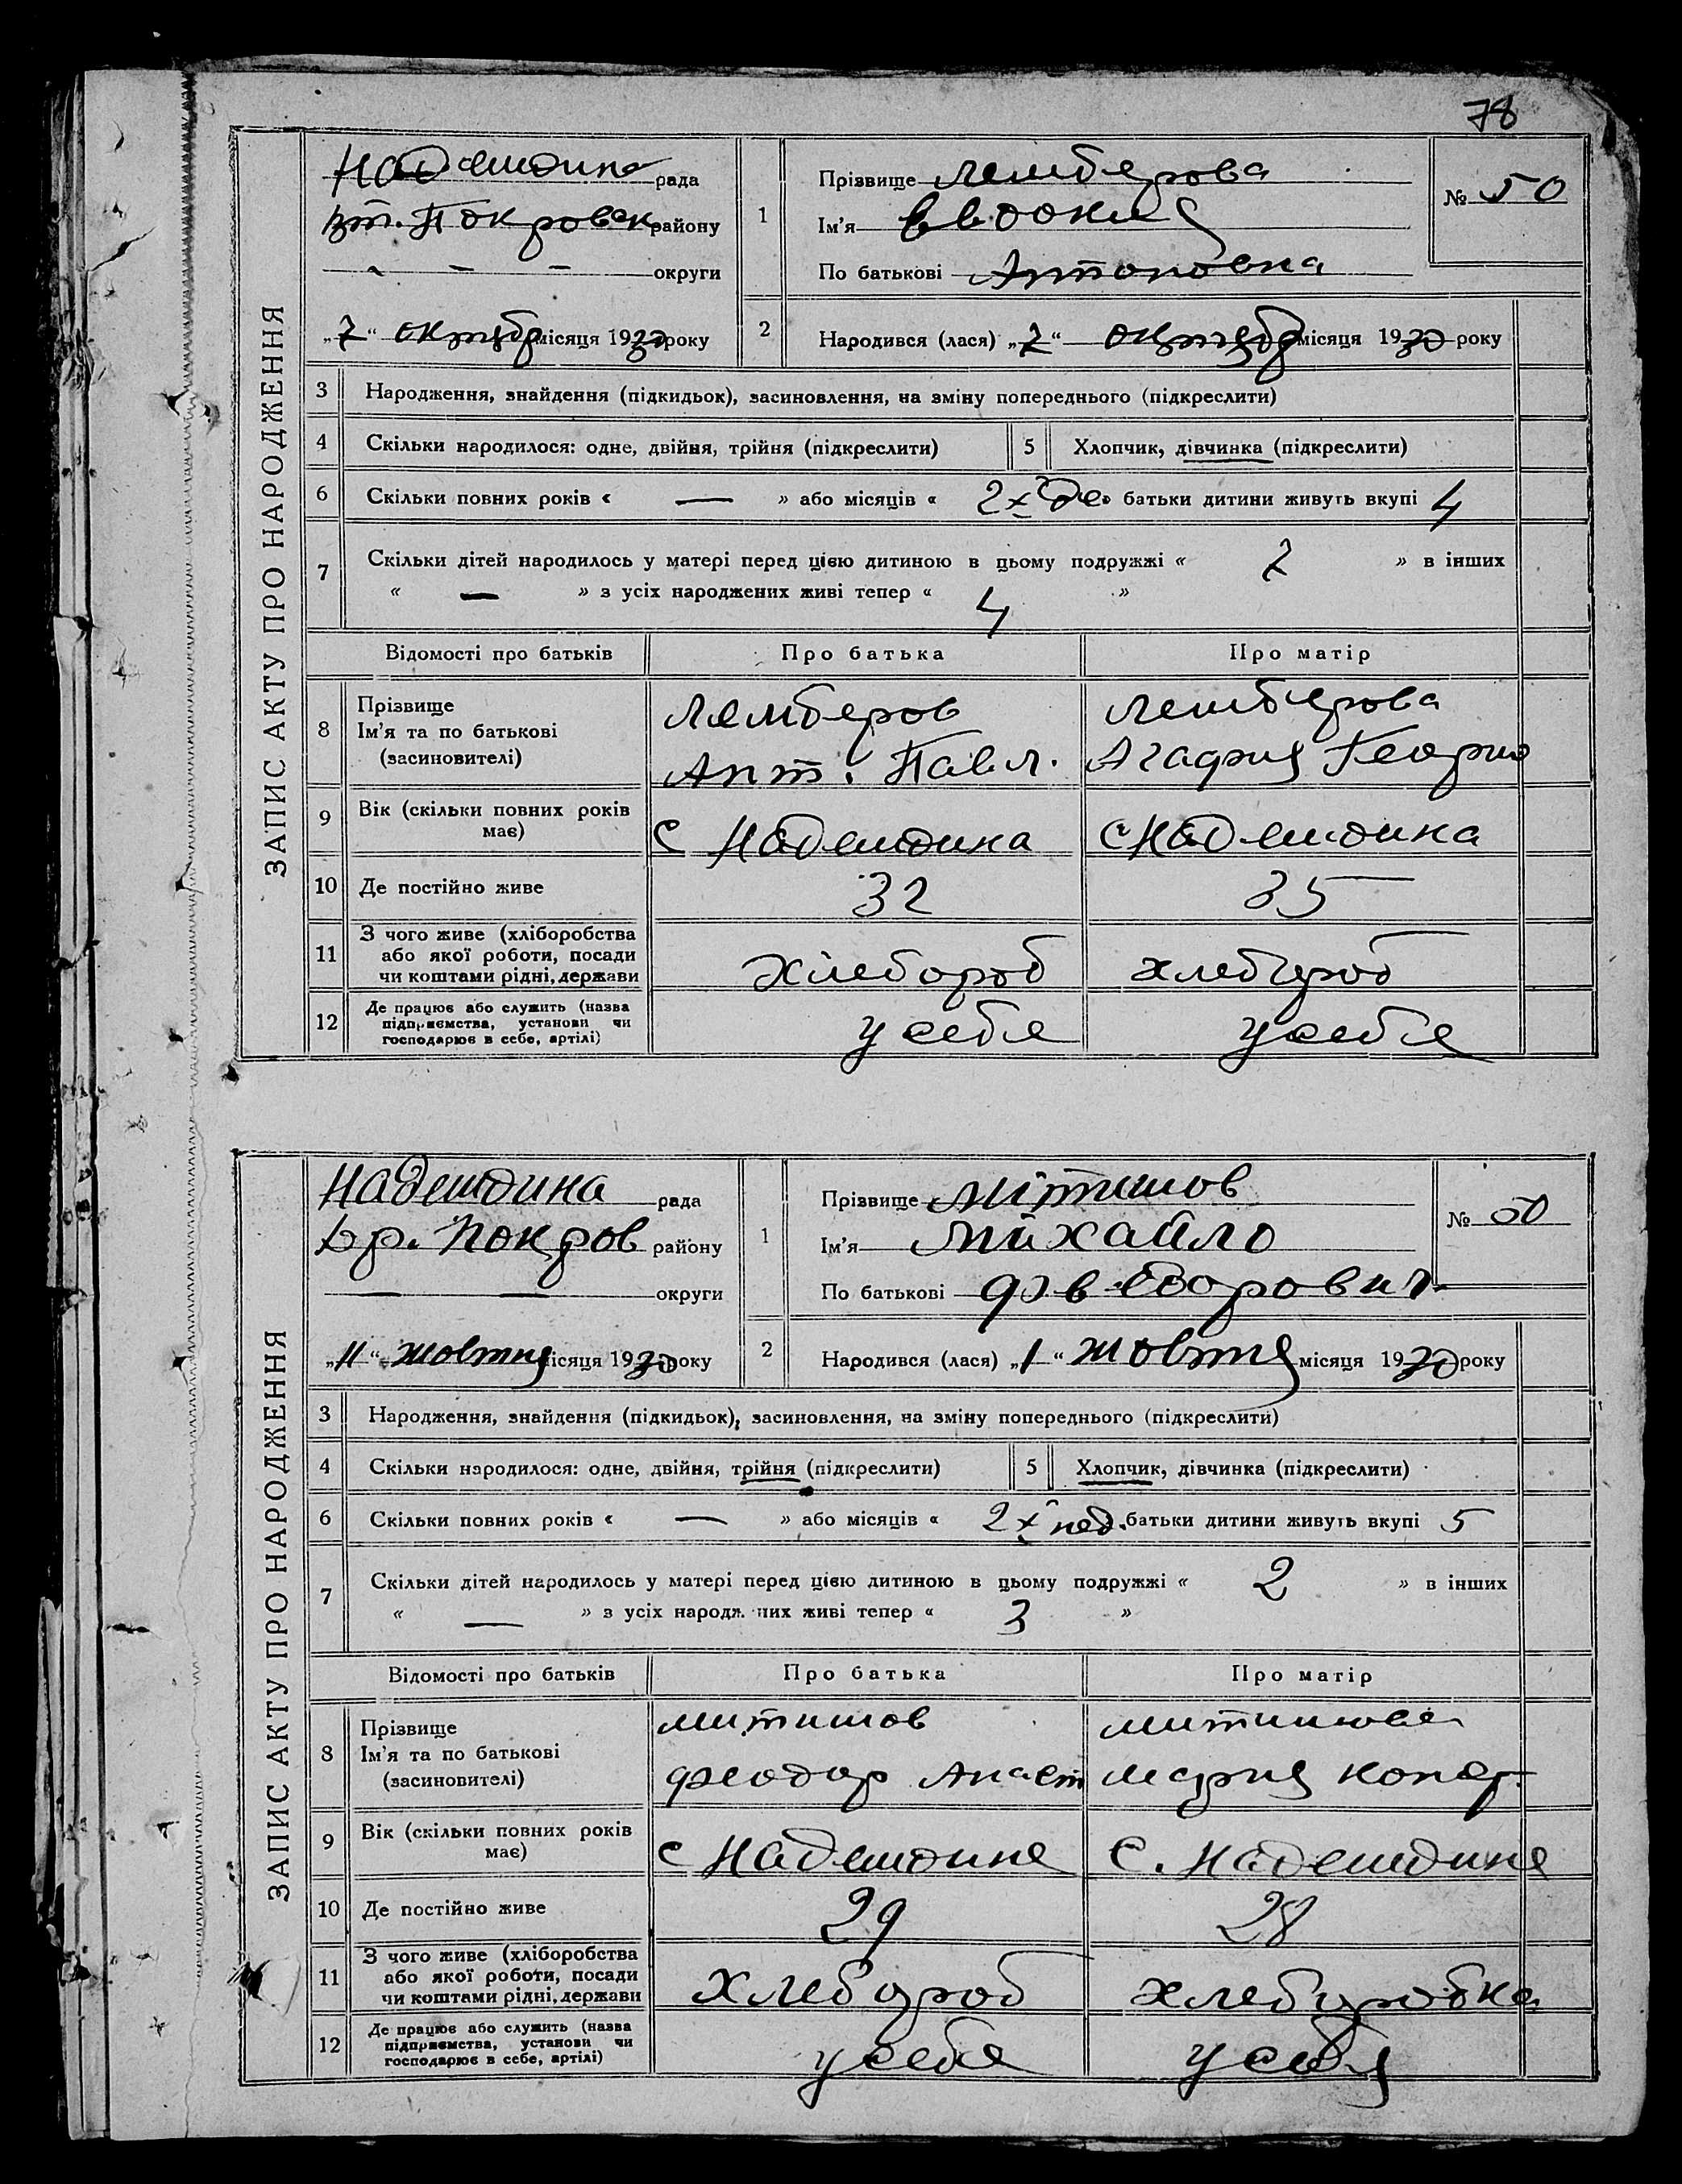 78
ЗАПИС АКТУ ПРО НАРОДЖЕННЯ
Надеждина рада
Покровск району
округи
„7“ октября місяця 1930 року
1
Прізвище Лемберова
Ім'я Евдокия
По батькові Антоновна
№ 50
2
Народився (лася) „7“ октября місяця 1930 року
3 Народження, знайдення (підкидьок), засиновлення, на зміну попереднього (підкреслити)
4 Скільки народилося: одне, двійня, трійня (підкреслити)
5 Хлопчик, дівчинка (підкреслити)
6 Скільки повних років « — » або місяців « 2х » батьки дитини живуть вкупі 4
7 Скільки дітей народилось у матері перед цією дитиною в цьому подружжі « 2 » в інших
« — » з усіх народжених живі тепер « 4 »
Відомості про батьків Про батька Про матір
8 Прізвище
Ім'я та по батькові
(засиновителі)
Лемберов
Ант. Павл.
Лемберова
Агафия Георгио
9 Вік (скільки повних років має)
с Надеждина
с Надеждина
10 Де постійно живе 32 35
11 З чого живе (хліборобства
або якої роботи, посади
чи коштами рідні, держави
Хлебороб
хлебороб
12 Де працює або служить (назва
підприємства, установи чи
господарює в себе, артілі)
у себе
у себе
ЗАПИС АКТУ ПРО НАРОДЖЕННЯ
Надеждина рада
Покров району
округи
„11“ жовтня місяця 1930 року
1
Прізвище Мітишов
Ім'я Міхайло
По батькові
№ 50
2
Народився (лася) „1“ жовтня місяця 1930 року
3 Народження, знайдення (підкидьок), засиновлення, на зміну попереднього (підкреслити)
4 Скільки народилося: одне, двійня, трійня (підкреслити)
5 Хлопчик, дівчинка (підкреслити)
6 Скільки повних років « — » або місяців « 2х нед. батьки дитини живуть вкупі 5
7 Скільки дітей народилось у матері перед цією дитиною в цьому подружжі « 2 » в інших
« — » з усіх народжених живі тепер « 3 »
Відомості про батьків Про батька Про матір
8 Прізвище
Ім'я та по батькові
(засиновителі)
Митишов
Феодор Анаст
Митишова
Мария
9 Вік (скільки повних років має)
с Надеждине
С. Надеждине
10 Де постійно живе 29 28
11 З чого живе (хліборобства
або якої роботи, посади
чи коштами рідні, держави
Хлебороб
хлеборобка
12 Де працює або служить (назва
підприємства, установи чи
господарює в себе, артілі)
у себе
у себя